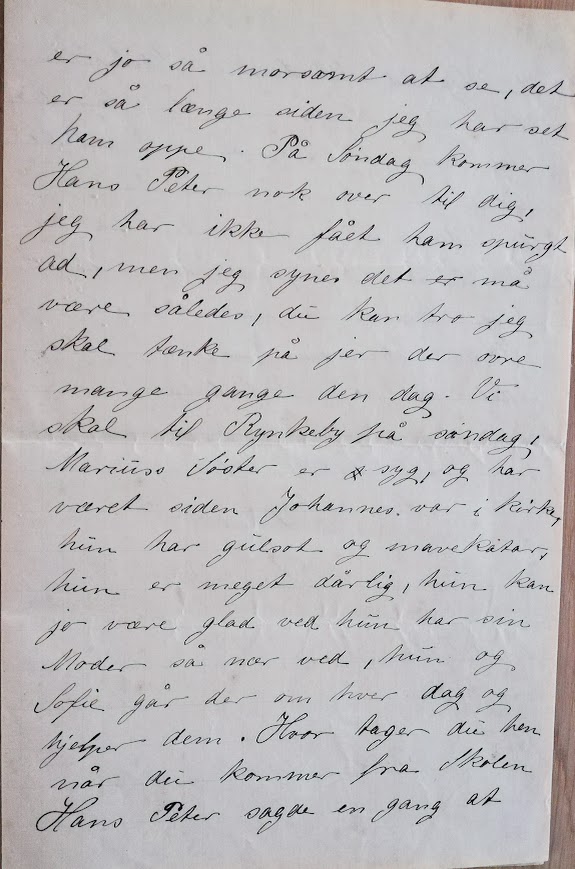 er jo så morsomt at se, det
er så længe siden jeg har set
ham oppe. På Søndag kommer
Hans Peter nok over til dig,
jeg har ikke fået ham spurgt
ad, men jeg synes det er må
være således, du kan tro jeg
skal tænke på jer der ovre
mange gange den dag. Vi
skal til Rynkeby på søndag,
Mariuss Søster er syg, og har
været siden Johannes. var i kirke,
hun har gulsot og mavekatar,
hun er meget dårlig, hun kan
jo være glad ved hun har sin
Moder så nær ved, hun og
Sofie går der om hver dag og
hjelper dem. Hvor tager du hen
når du kommer fra Skolen
Hans Peter sagde en gang at